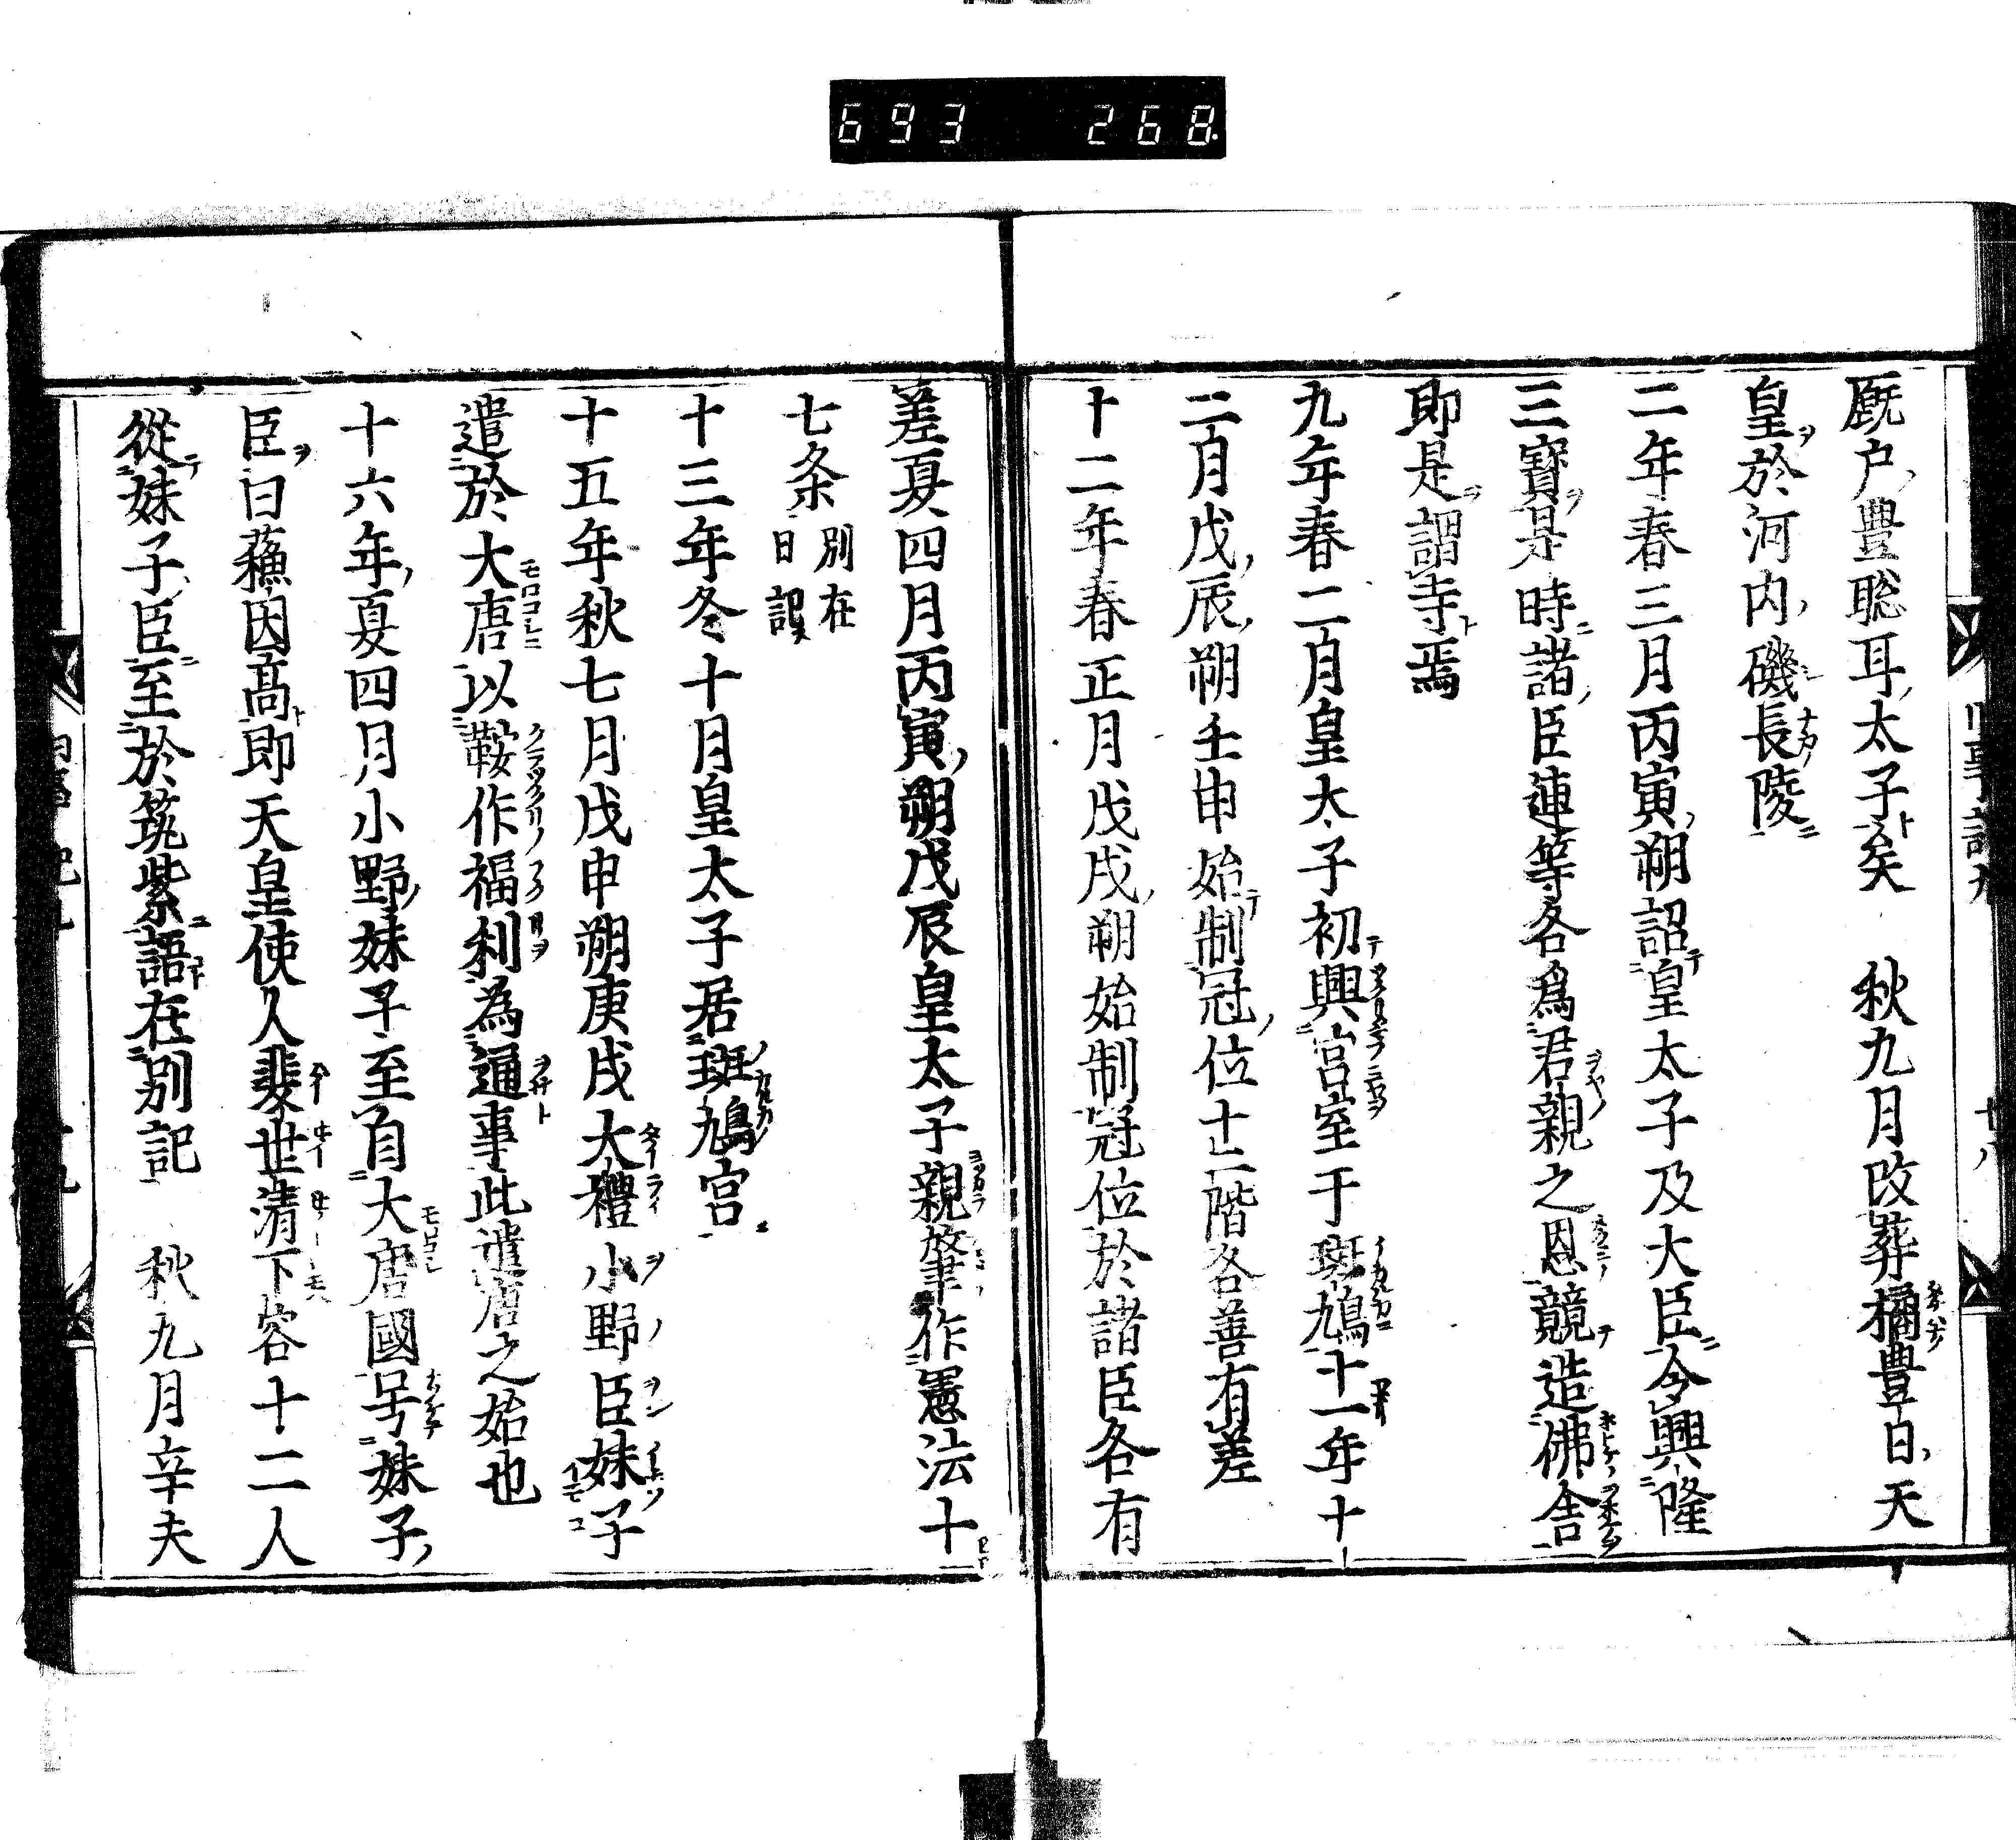 693 268
厩戸豊聡耳太子矣 秋九月改葬橘豊日天
皇於河内磯長陵
二年春三月丙寅朔詔皇太子及大臣令興隆
三寶是時諸臣連等各爲君親之恩競造佛舎
即是謂寺焉
九年春二月皇太子初興宮室于斑鳩十一年十
二月戊辰朔壬申始制冠位十二階各善有差
十二年春正月戊戌朔始制冠位於諸臣各有
差夏四月丙寅朔戊辰皇太子親筆作憲法十
七条 別在
日記
十三年冬十月皇太子居斑鳩宮
十五年秋七月戊申朔庚戌大禮小野臣妹子
遣於大唐以鞍作福利為通事此遣唐之始也
十六年夏四月小野妹子至自大唐國号妹子
臣曰蘓因髙即天皇使人裴世清下容十二人
從妹子臣至於筑紫語在別記 秋九月辛夫